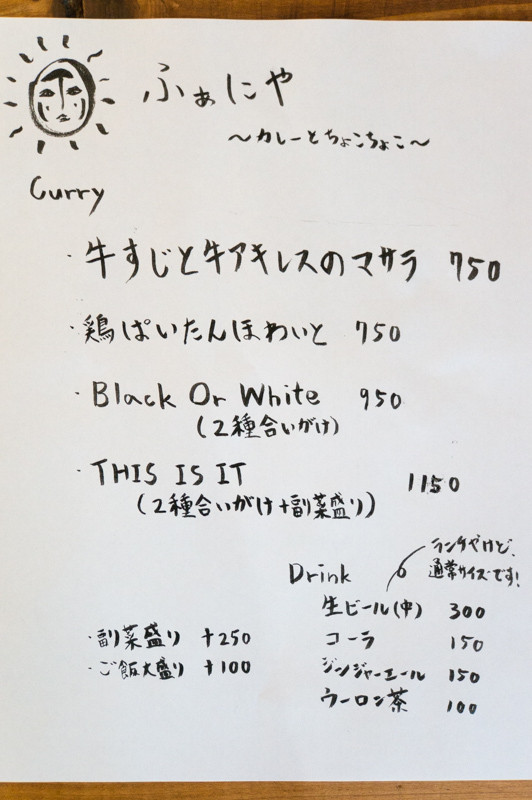 ふぁにや
〜カレーとちょこちょこ〜
Curry
・牛すじと牛アキレスのマサラ 750
・鶏ぱいたんほわいと 750
・Black Or White 950
(2種合いがけ)
・THIS IS IT 1150
(2種合いがけ+副菜盛り)
ランチやけど、
通常サイズです!
Drink
生ビール(中) 300
コーラ 150
ジンジャーエール 150
ウーロン茶 100
・副菜盛り +250
・ご飯大盛り +100